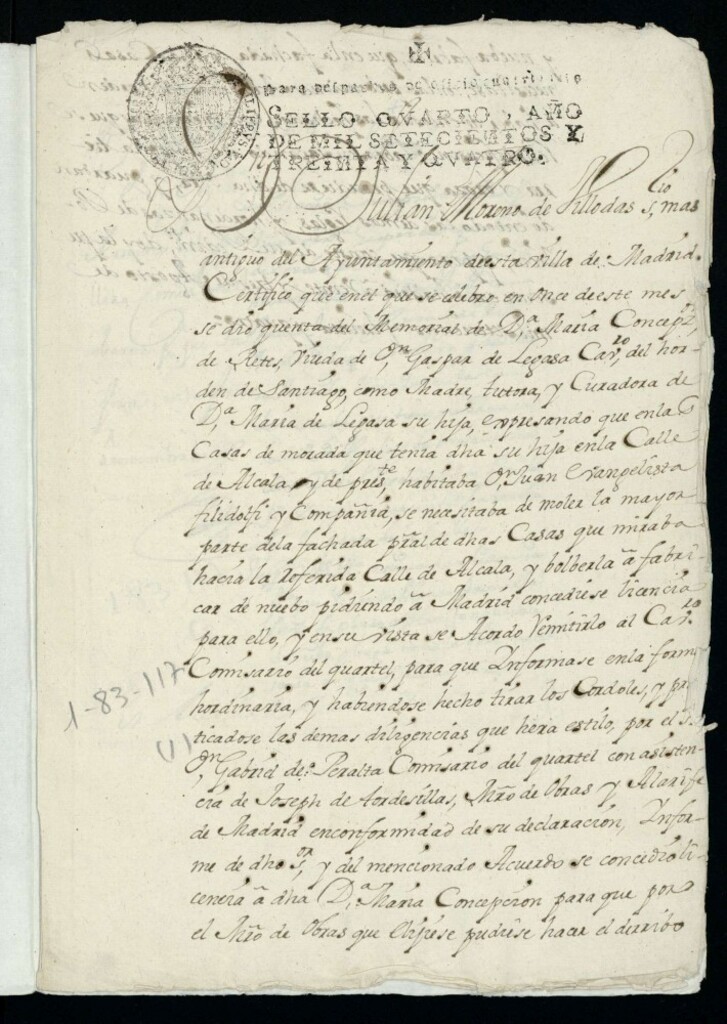 para despachos de oficio quatro mrs
SELLO QVARTO, AÑO
DE MIL SETECIENTOS Y
TREINTA Y QVATRO.
Dn Julian Moreno de Villodas srio mas
antiguo del Ayuntamiento de esta Villa de Madrid.
Certifico que en el que se celebre en once de este mes
se dio quenta del Memorial de D.a Maria Concepn
de Retes, Viuda de Dn Gaspar de Legasa Cavro del hor-
den de Santiago, como Madre, tutora, y Curadora de
D.a Maria de Legasa su hija, expresando que en las
Casas de morada que tenia dha su hija en la Calle
de Alcala, y de preste habitaba Dn Juan Evangelista
filidolfi y Compañia, se necesitaba de moler la mayor
parte dela fachada pral de dhas Casas que miraba
hacia la referida Calle de Alcala, y bolberla a fabri-
car de nuebo pidiendo a Madrid concediese licencia
para ello, y en su vista se Acordo Remitirlo al Cavro
Comisario del quartel, para que Informase en la forma
hordinaria, y habiendose hecho tirar los Cordoles, y prac
ticadose las demas diligencias que hera estilo, por el Sr
1-83-117
(1)
Dn Gabriel de Peralta Comisario del quartel con asisten-
cia de Joseph de tordesillas, Mro de Obras y Alarife
de Madrid en conformidad de su declaracion, Infor-
me de dho sor, y del mencionado Acuerdo se concedio li-
cencia a dha D.a Maria Concepcion para que por
el Mro de Obras que elijiese pudiese hacer el derribo